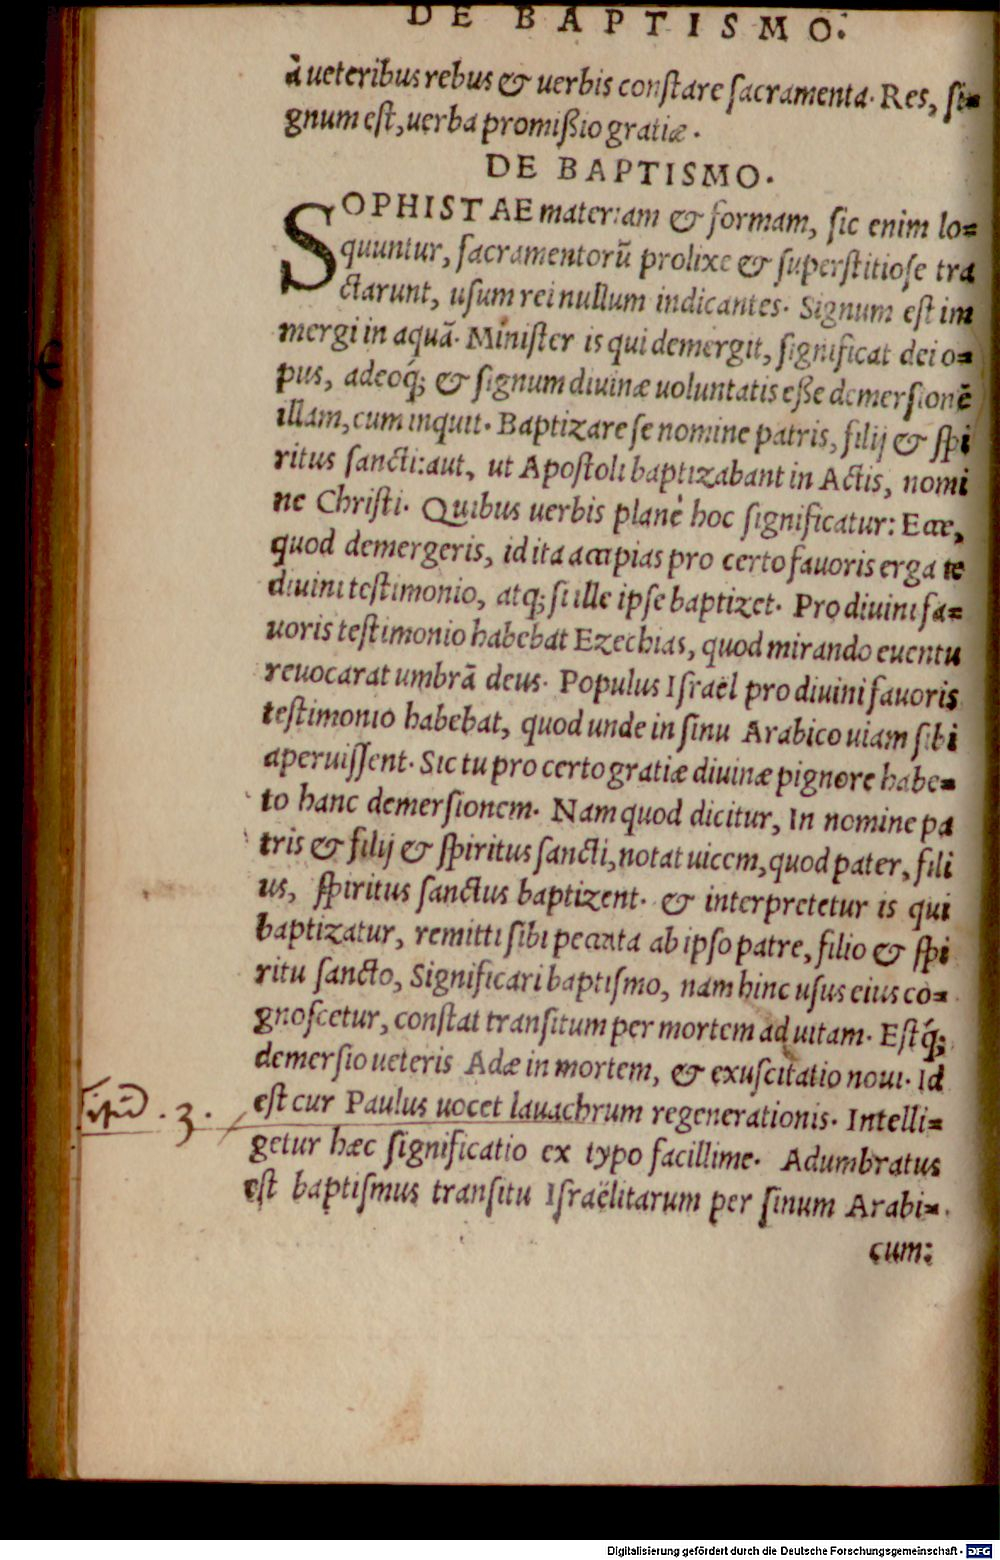 DE BAPTISMO.
à ueteribus rebus & uerbis constare sacramenta. Res, si=
gnum est, uerba promißio gratiæ.
DE BAPTISMO.
SOPHISTAE materiam & formam, sic enim lo=
quuntur, sacramentorũ prolixe & superstitiose tra
ctarunt, usum rei nullum indicantes. Signum est im
mergi in aquã. Minister is qui demergit, significat dei o=
pus, adeoq; & signum diuinæ uoluntatis eße demersionẽ
illam, cum inquit. Baptizare se nomine patris, filij & spi
ritus sancti: aut, ut Apostoli baptizabant in Actis, nomi
ne Christi. Quibus uerbis planè hoc significatur: Ecce,
quod demergeris, id ita accipias pro certo fauoris erga te
diuini testimonio, atq; si ille ipse baptizet. Pro diuini fa=
uoris testimonio habebat Ezechias, quod mirando euentu
reuocarat umbrã deus. Populus Israël pro diuini fauoris
testimonio habebat, quod unde in sinu Arabico uiam sibi
aperuissent. Sic tu pro certo gratiæ diuinæ pignore habe=
to hanc demersionem. Nam quod dicitur, In nomine pa
tris & filij & spiritus sancti, notat uicem, quod pater, fili
us, spiritus sanctus baptizent. & interpretetur is qui
baptizatur, remitti sibi peccata ab ipso patre, filio & spi
ritu sancto, Significari baptismo, nam hinc usus eius co=
gnoscetur, constat transitum per mortem ad uitam. Estq́;
demersio ueteris Adæ in mortem, & exuscitatio noui. Id
est cur Paulus uocet lauachrum regenerationis. Intelli=
3.
getur hæc significatio ex typo facillime. Adumbratus
est baptismus transitu Israëlitarum per sinum Arabi=
cum:
Digitalisierung gefördert durch die Deutsche Forschungsgemeinschaft - DFG